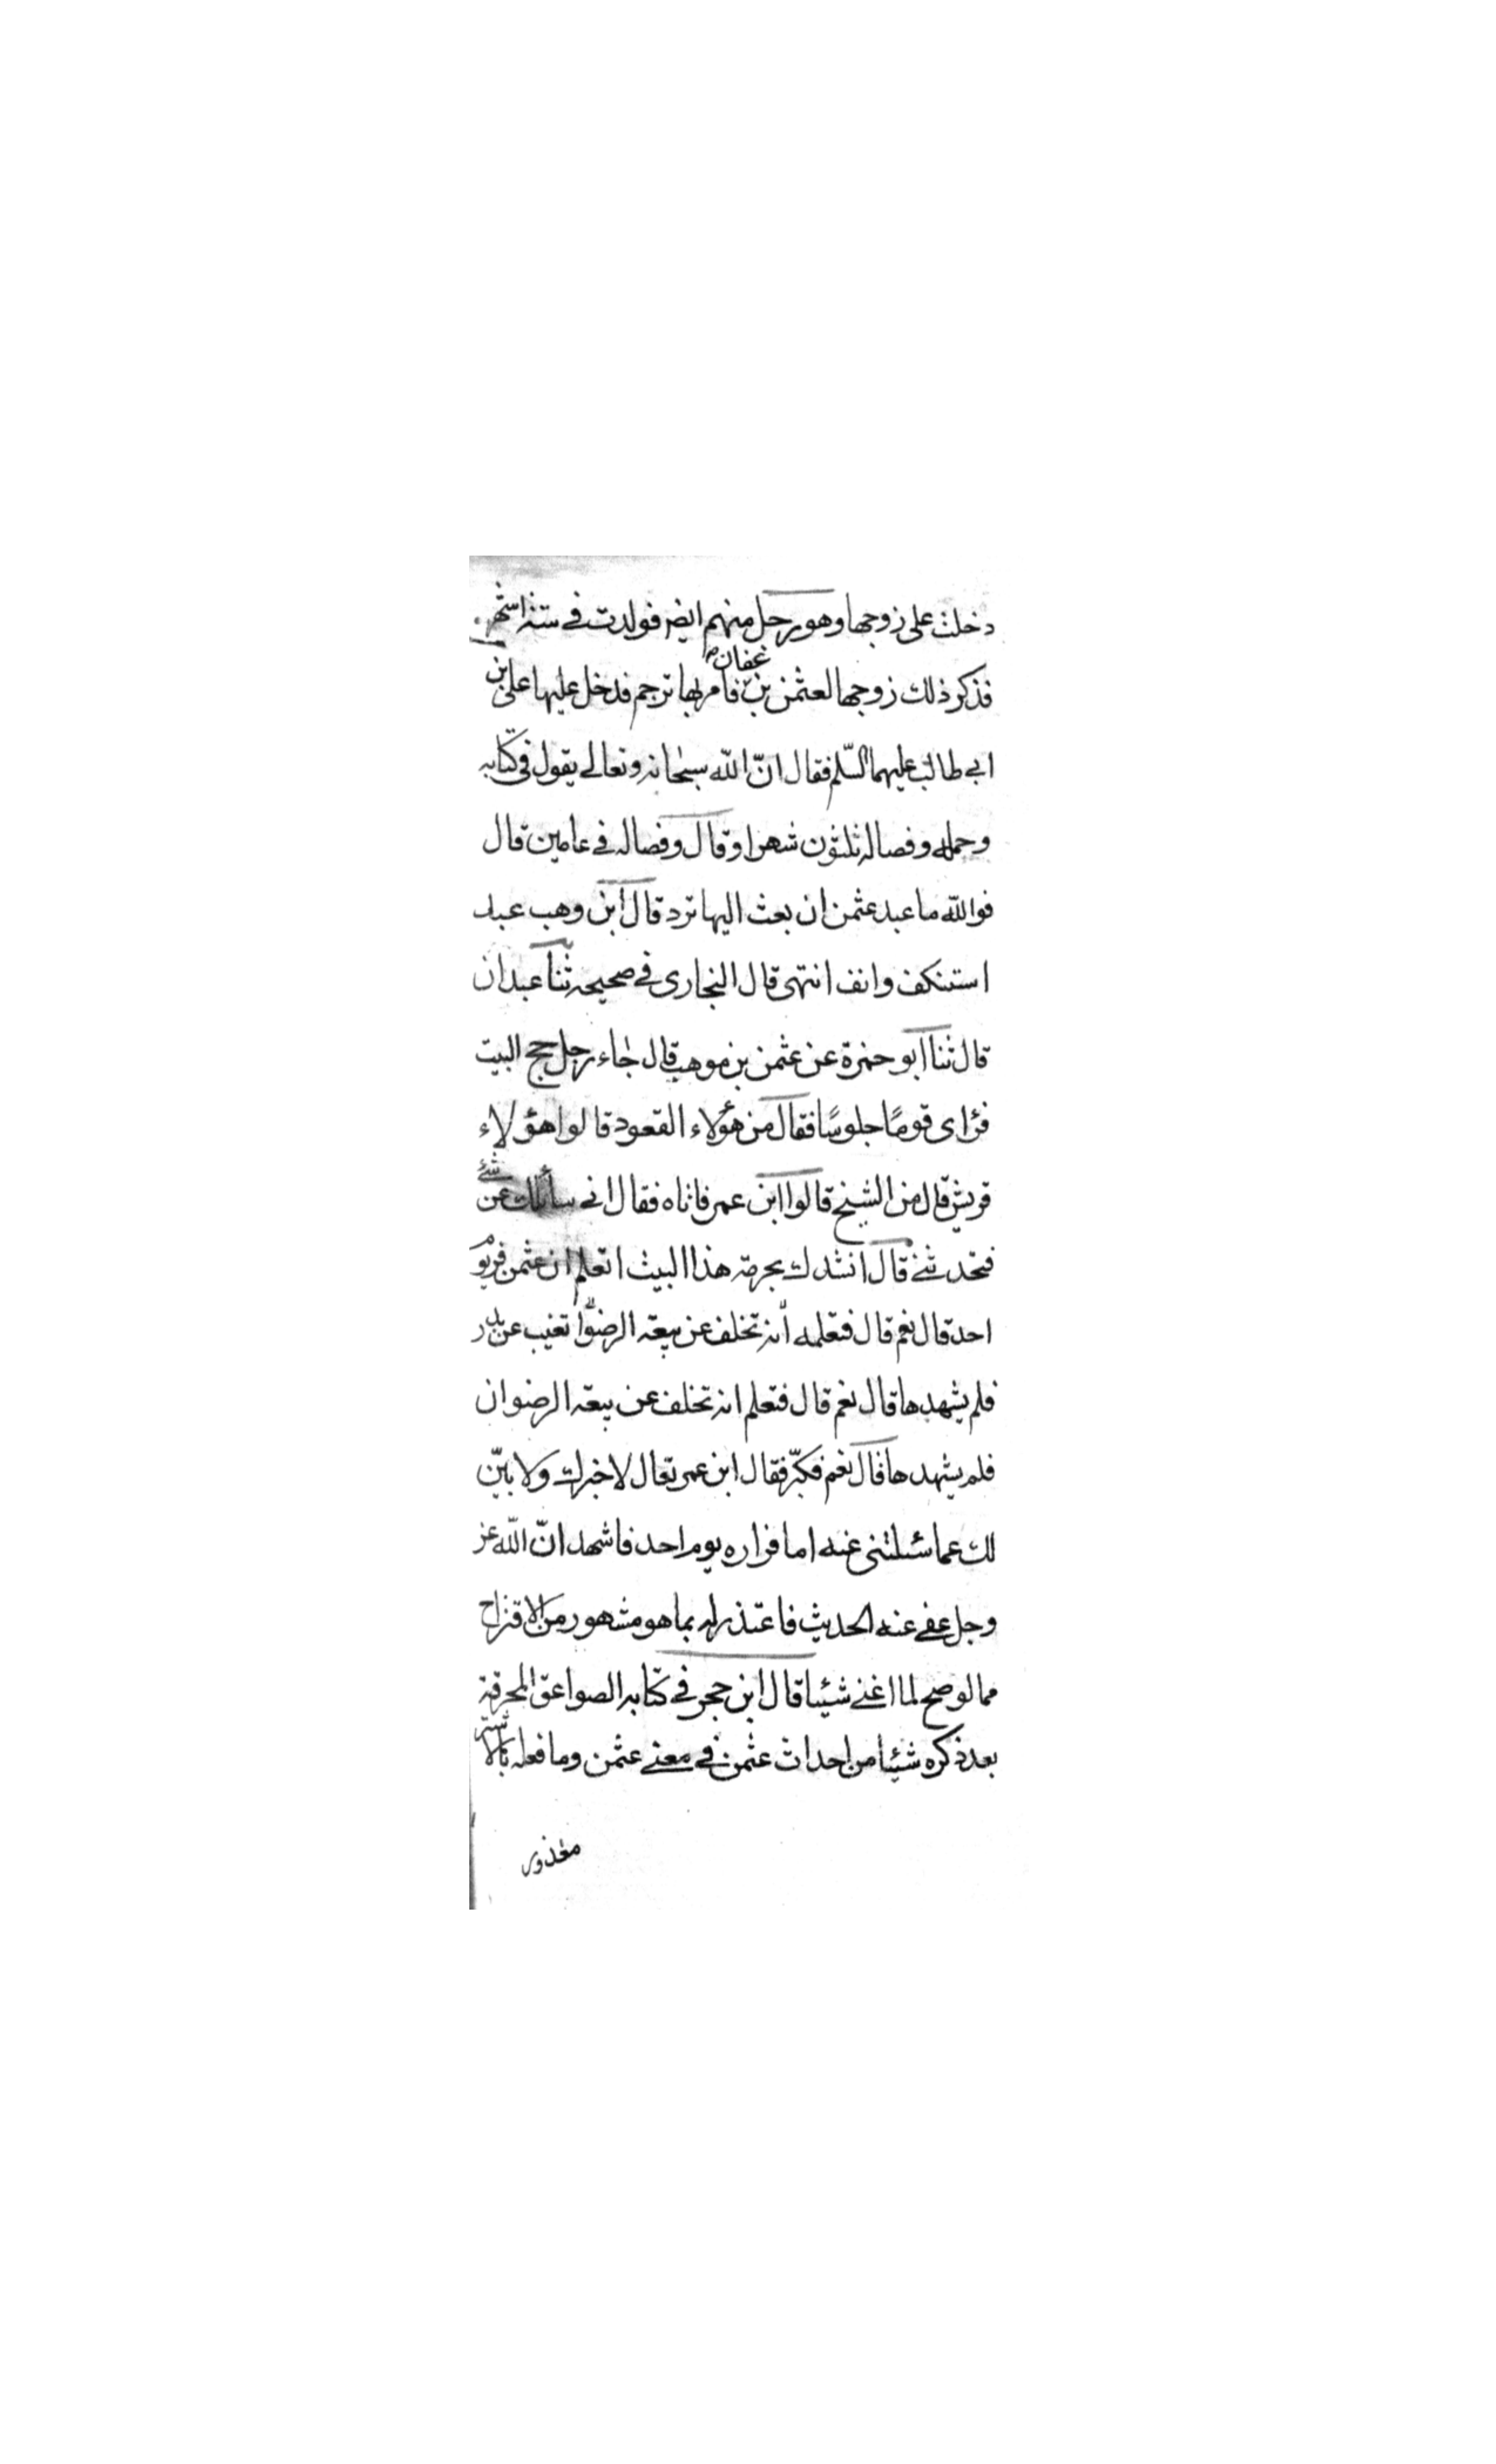 دخلت على زوجها وهو رجل منهم ايضا فولدت في ستة اشهر
فذكر ذلك زوجها لعثمن بن عفان فامر بها ترجم فدخل عليها على بن
ابي طالب عليهما السّلم فقال انّ الله سبحانه وتعالى يقول في كتابه
وحمله وفصاله ثلثون شهرا وقال وفصاله في عامين قال
فوالله ما عبد عثمن ان بعث اليها ترد قال ابن وهب عبد
استنكف وانف انتهى قال البخارى في صحيحه ثنا عبدان
قال ثنا ابو حمزة عن عثمن بن موهب قال جاء رجل حج البيت
فرأى قومًا جلوسًا فقال من هؤلاء القعود قالوا هؤلاء
قريش قال من الشيخ قالوا ابن عمر فاتاه فقال اني سائلك عن شئ
فتحدثني قال انشدك بحرمة هذا البيت اتعلم ان عثمن فر يوم
احد قال نعم قال فتعلمه انه تخلف عن بيعة الرضوا تغيب عن بدر
فلم يشهدها قال نعم قال فتعلم انه تخلف عن بيعة الرضوان
فلم يشهدها قال نعم فكبّر فقال ابن عمر تعال لاخبرك ولابيّن
لك عما سئلتنى عنه اما فراره يوم احد فاشهد انّ الله عز
وجل عفى عنه الحديث فاعتذر له بما هو مشهور من الاقتراح
مما لو صح لما اغنى شيئا قال ابن حجر في كتابه الصواعق المحرقة
بعد ذكره شيئا من احداث عثمن في معنى عثمن وما فعله بالاشتر
معذور